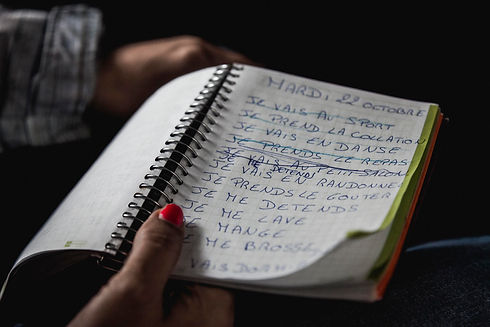 MARDI 22 OCTOBRE
JE VAIS AU SPORT
JE PREND LA COLLATION
JE VAIS EN DANSE
JE PRENDS LE REPAS
JE VAIS AU PETIT SALON
JE ME DETENDS
JE VAIS EN RANDONNEE
JE PRENDS LE GOUTER
JE ME DETENDS
JE ME LAVE
JE MANGE
JE ME BROSSE
VAIS DORM